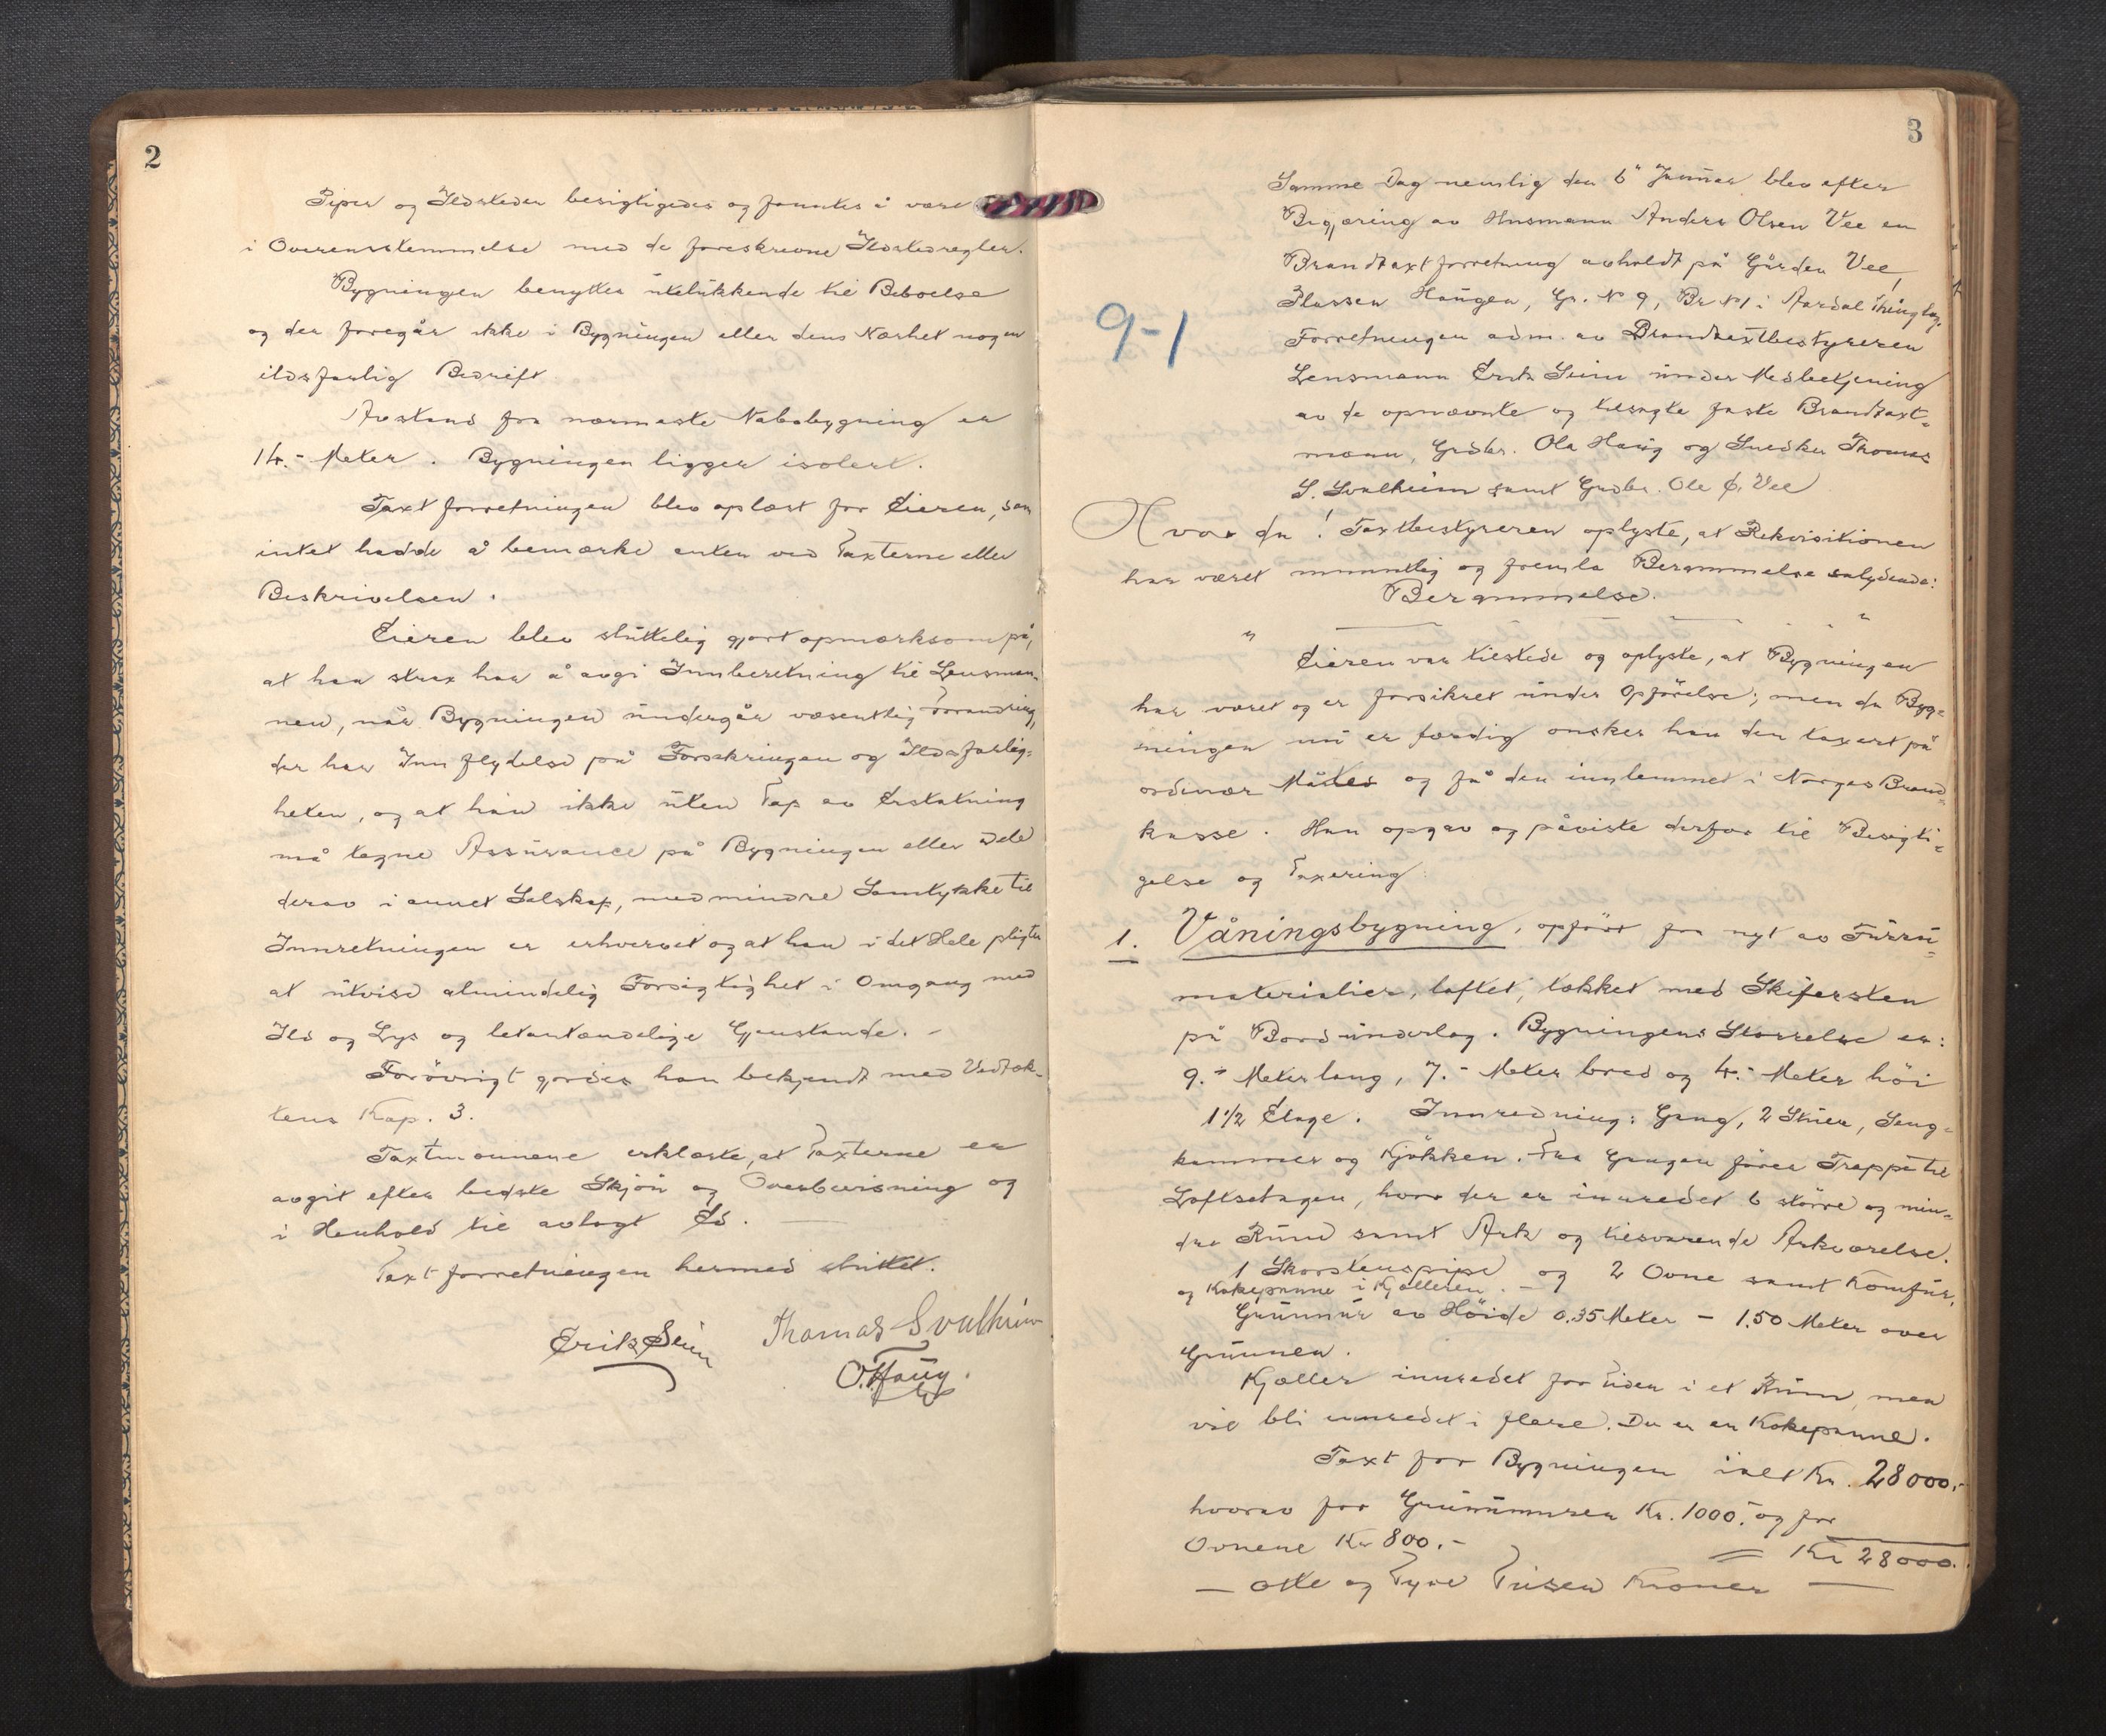 2
Piper og Ildsteder besigtigedes og fanntes å være
i Overensstemmelse med de foreskrevne Ildstedregler.
Bygningen benyttes utelukkende til Beboelse
og der foregår ikke i Bygningen eller dens Nærhet nogen
ildsfarlig Bedrift
Avstand fra nærmeste Nabobygning er
14.- Meter. Bygningen ligger isolert.
Taxtforretningen blev oplæst for Eieren, som
intet hadde å bemærke enten ved Taxterne eller
Beskrivelsen.
Eieren blev sluttelig gjort opmærksom på,
at han strax har å avgi Innberetning til Lensman-
nen, når Bygningen undergår væsentlig Forandring,
der har Innflydelse på Forsikringen og Ildsfarlig-
heten, og at han ikke uten Tap av Erstatning
må tegne Assurance på Bygningen eller Dele
derav i annet Selskap, medmindre Samtykke til
Innretningen er erhvervet og at han i det Hele pligter
at utvise almindelig Forsigtighet i Omgang med
Ild og Lys og letantændelige Gjenstande. -
Forøvrigt gjordes han bekjendt med Vedtæk-
tens Kap. 3.
Taxtmænnene erklærte, at Taxterne er
avgit efter bedste Skjøn og Overbevisning og
i Henhold til avlagt Ed.
Taxtforretningen hermed sluttet.
Erik Seim Thomas Svalheim
O. Haug.
3
Samme Dag nemlig den 6" Januar blev efter
Begjæring av Husmann Anders Olsen Vee en
Brandtaxtforretning avholdt på Gården Vee,
9-1
Plassen Haugen, Gr. No 9, Br No 1 i Aardal Thinglag.
Forretningen adm. av Brandtaxtbestyreren
Lensmann Erik Seim under Medbetjening
av de opnævnte og edsagte faste Brandtaxt-
mænn, Grdbr. Ola Haug og Snedker Thomas
S. Svalheim samt Grdbr. Ole Ø. Vee
Hvor da! Taxtbestyreren oplyste, at Rekvisitionen
har været munntlig og fremla Berammelse salydende:
Berammelse.
" "
Eieren var tilstede og oplyste, at Bygningen
har været og er forsikret under Opførelse; men da Byg-
ningen nu er færdig ønsker han den taxert på
ordinær Måte og få den innlemmet i Norges Brand-
kasse. Han opgav og påviste derfor til Besigti-
gelse og Taxering:
1. Våningsbygning, opført fra nyt av Furu-
materialier, laftet, tækket med Skifersten
på Bord underlag. Bygningens Størrelse er:
9.- Meter lang, 7.- Meter bred og 4.- Meter høi
1 1/2 Etage. Innredning: Gang, 2 Stuer, Seng-
kammer og Kjøkken. Fra Gangen fører Trappe til
Loftsetagen, hvor der er innredet 6 større og min-
dre Rum samt Ark og tilsvarende Arkværelse.
1 Skorstenspipe og 2 Ovne samt Komfur,
og Kokepanne i Kjælleren. -
Grunnmur av Høide 0.35 Meter - 1.50 Meter over
Grunnen.
Kjæller innredet for Tiden i et Rum, men
vil bli innredet i flere. Der er en Kokepanne.
Taxt for Bygningen ialt Kr. 28000.-
hvorav for Grunnmuren Kr. 1000.- og for
Ovnene Kr 800.-
= Kr 28000.
- Otte og Tyve Tusen Kroner -